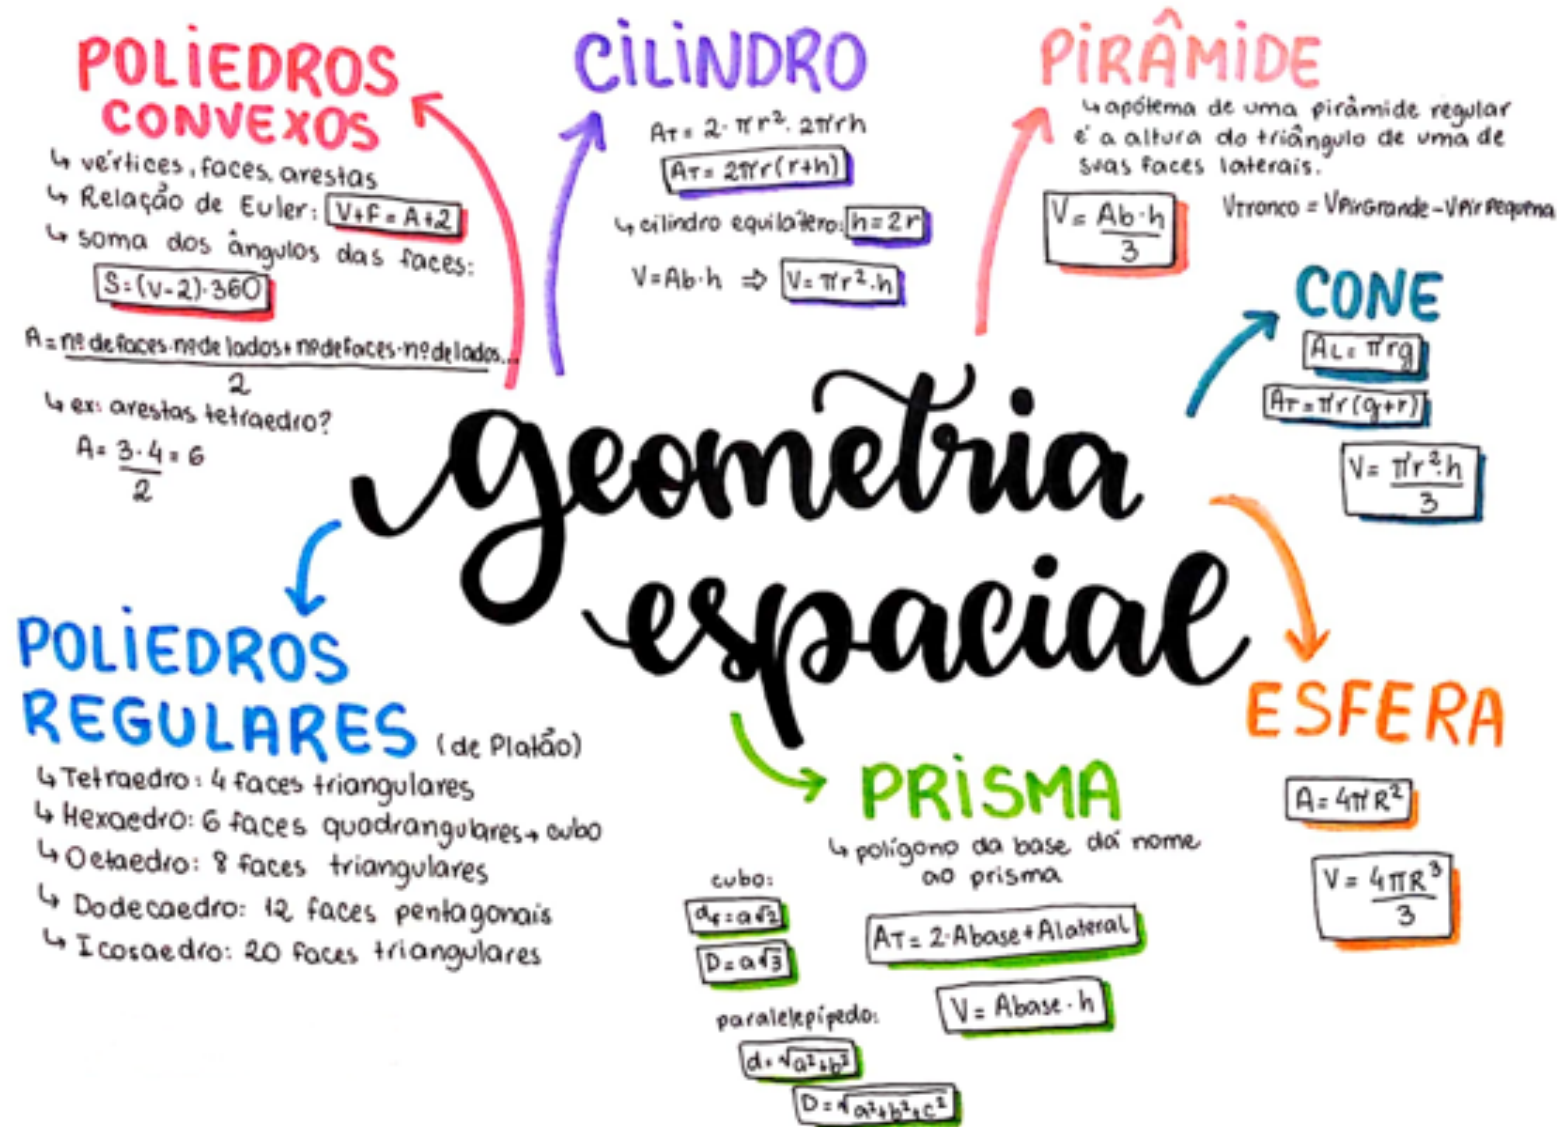 POLIEDROS
CONVEXOS
↳ vértices, faces, arestas
↳ Relação de Euler: V+F = A+2
↳ soma dos ângulos das faces:
S=(v-2)·360
A = nº de faces·nº de lados + nº de faces·nº de lados...
2
↳ ex: arestas tetraedro?
A = 3·4 = 6
2
CILINDRO
AT = 2·πr²·2πrh
AT = 2πr(r+h)
↳ cilindro equilátero: h=2r
V=Ab·h ⇒ V=πr²·h
PIRÂMIDE
↳ apótema de uma pirâmide regular
é a altura do triângulo de uma de
suas faces laterais.
V = Ab·h
3
VTronco = VPirGrande - VPir Pequena
CONE
AL = πrg
AT = πr(g+r)
V = πr²·h
3
geometria
espacial
POLIEDROS
REGULARES (de Platão)
↳ Tetraedro: 4 faces triangulares
↳ Hexaedro: 6 faces quadrangulares → cubo
↳ Octaedro: 8 faces triangulares
↳ Dodecaedro: 12 faces pentagonais
↳ Icosaedro: 20 faces triangulares
PRISMA
↳ polígono da base dá nome
ao prisma
cubo:
df = a√2
D = a√3
AT = 2·Abase + Alateral
V = Abase·h
paralelepípedo:
d = √a²+b²
D = √a²+b²+c²
ESFERA
A = 4πR²
V = 4πR³
3